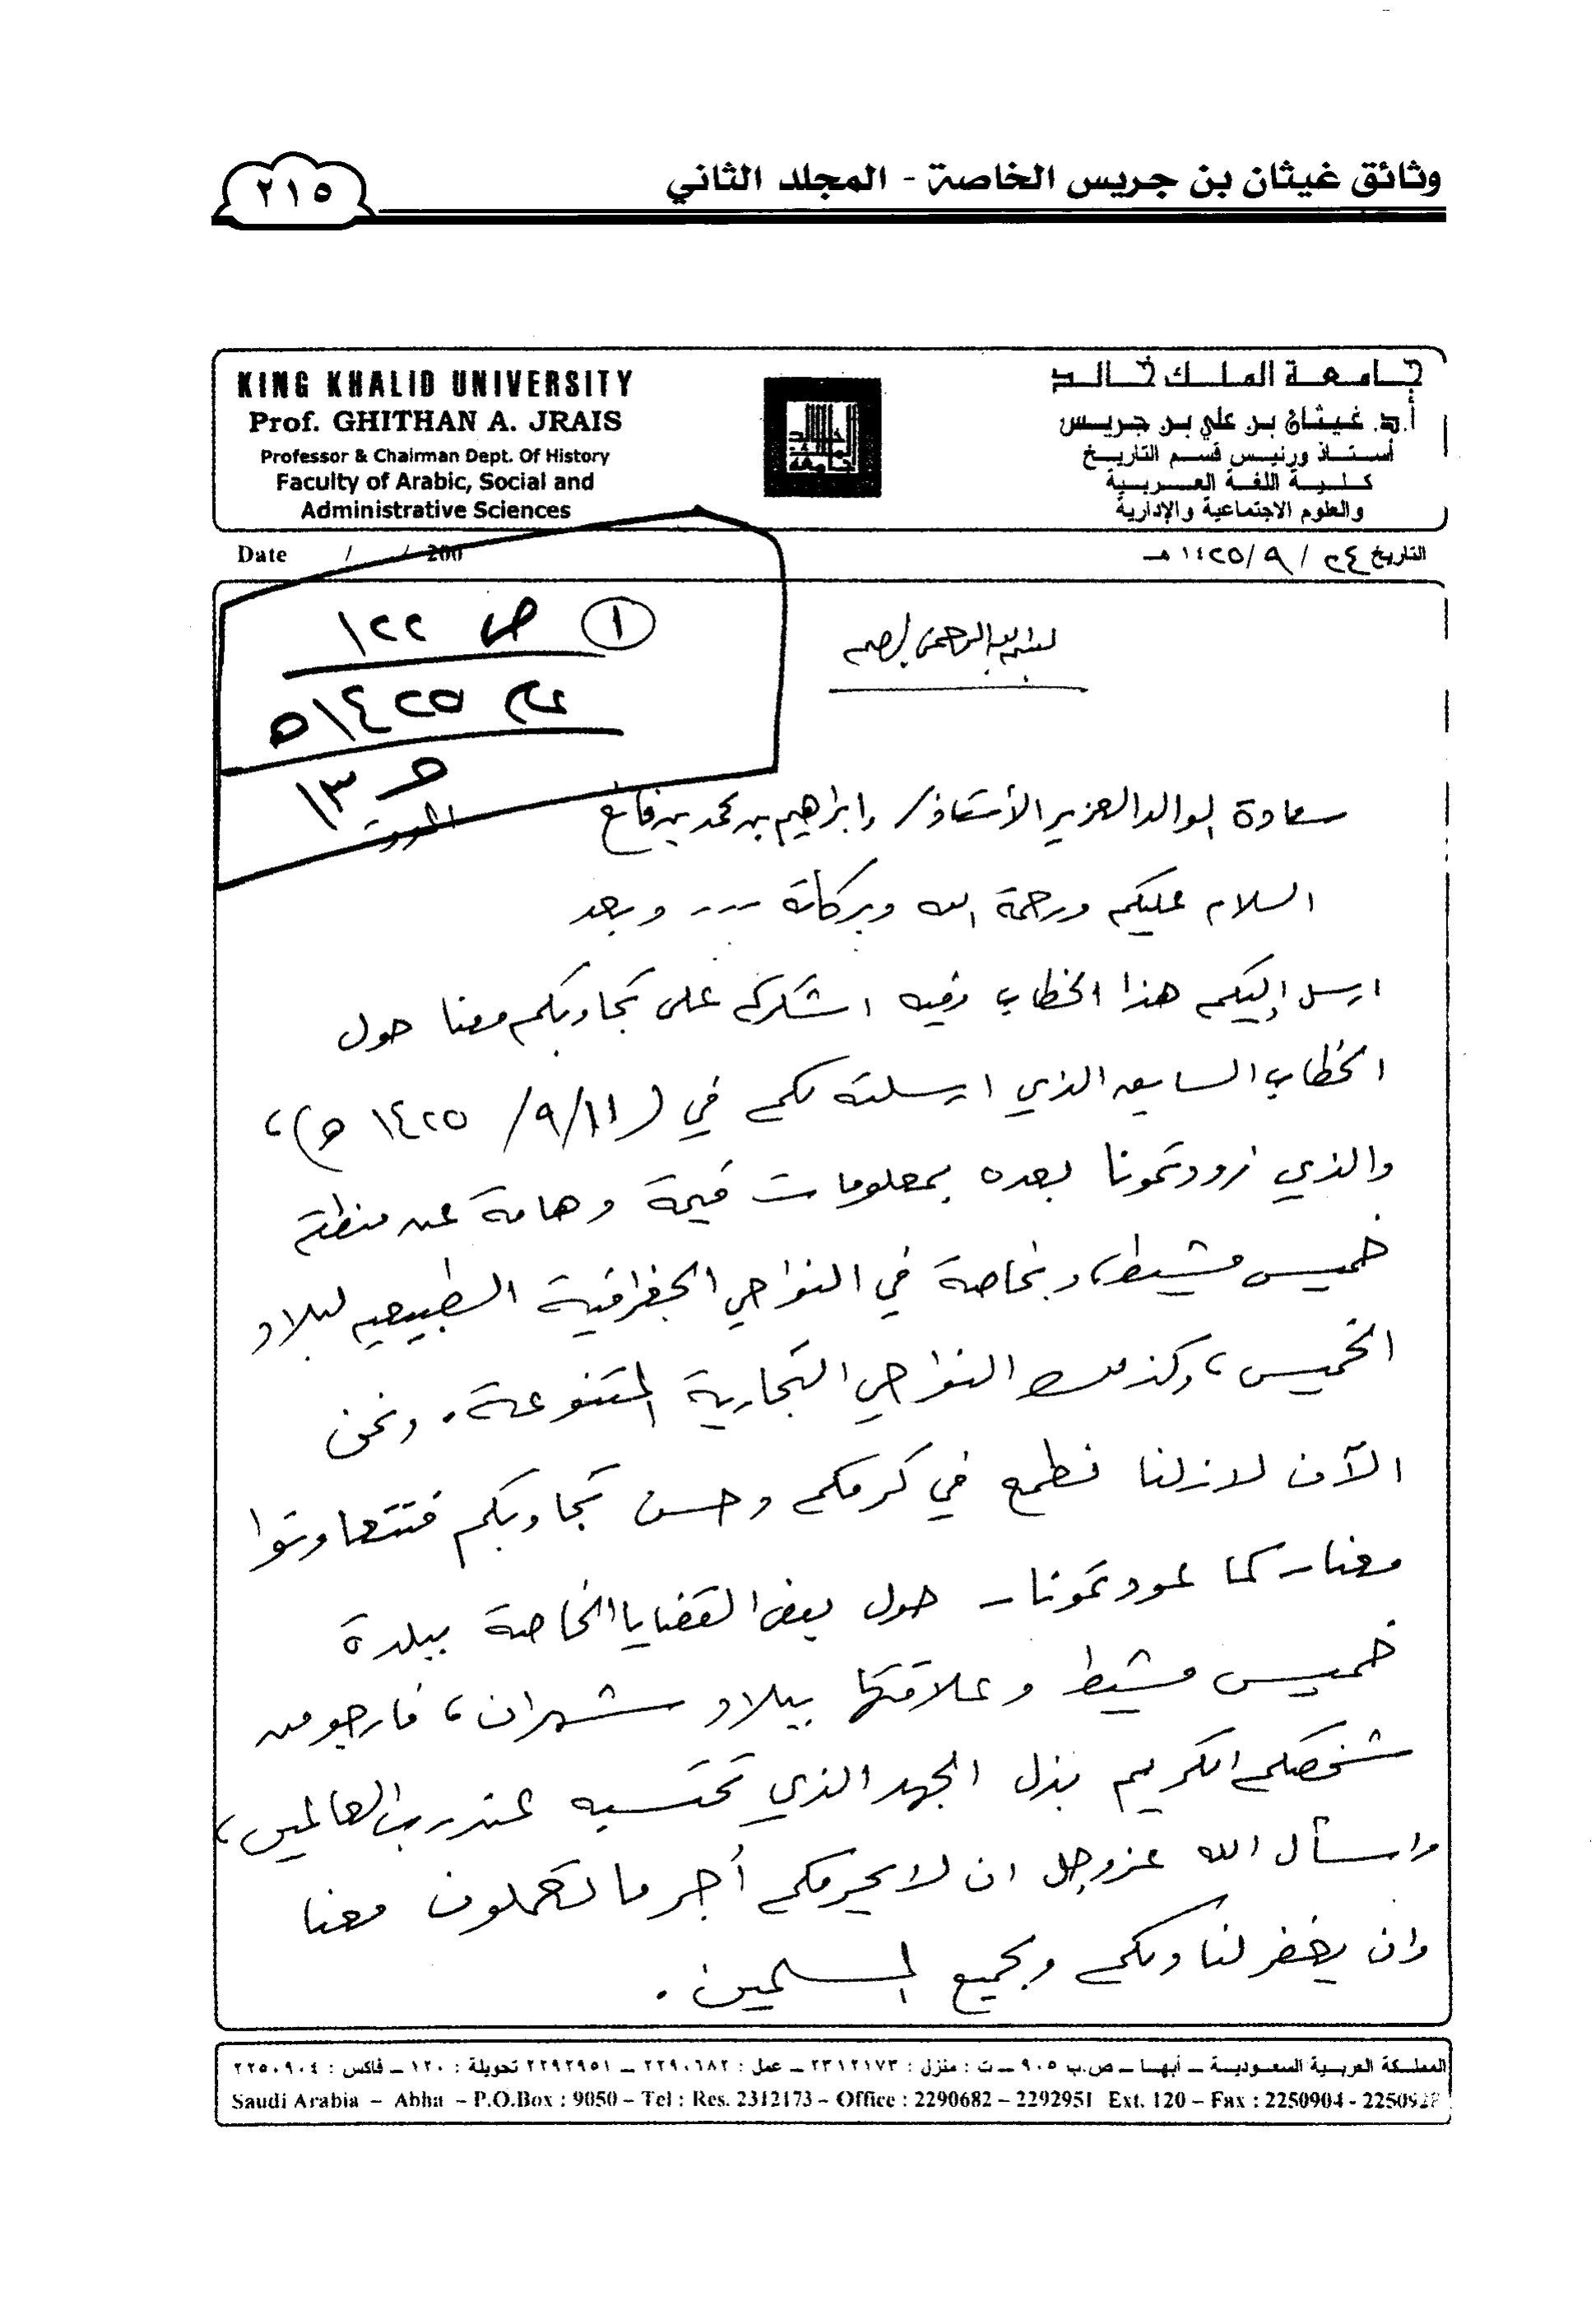 وثائق غيثان بن جريس الخاصة - المجلد الثاني
٢١٥
KING KHALID UNIVERSITY
Prof. GHITHAN A. JRAIS
Professor & Chairman Dept. Of History
Faculty of Arabic, Social and
Administrative Sciences
جامعة الملك خالد
أ.د. غيثان بن علي بن جريس
أستاذ ورئيس قسم التاريخ
كلية اللغة العربية
والعلوم الاجتماعية والإدارية
Date / / 200
التاريخ ٢٤ / ٩ / ١٤٢٥ هـ
١ ص ١٢٢
عام ١٤٢٥ه
حـ ١٣
بسم الله الرحمن الرحيم
سعادة الوالد العزيز الأستاذ / إبراهيم بن محمد بن فائع الموقر
السلام عليكم ورحمة الله وبركاته --- وبعد
ارسل إليكم هذا الخطاب وفيه اشكركم على تجاوبكم معنا حول
الخطاب السابق الذي ارسلته لكم في (١١/ ٩/ ١٤٢٥ ه)،
والذي زودتمونا بعده بمعلومات قيمة وهامة عن منطقة
خميس مشيط، وبخاصة في النواحي الجغرافية الطبيعيه لبلاد
الخميس، وكذلك النواحي التجارية المتنوعة. ونحن
الآن لازلنا نطمع في كرمكم وحسن تجاوبكم فتتعاونوا
معنا - كما عودتمونا - حول بعض القضايا الخاصة ببلدة
خميس مشيط وعلاقتها ببلاد شهران، فارجو من
شخصكم الكريم بذل الجهد الذي تحتسبه عند رب العالمين،
واسأل الله عز وجل ان لا يحرمكم أجر ما تعملون معنا
وان يغفر لنا ولكم ولجميع المسلمين.
المملكة العربية السعودية – أبها – ص.ب ٩٠٥ – ت : منزل : ٢٣١٢١٧٣ – عمل : ٢٢٩٠٦٨٢ – ٢٢٩٢٩٥١ تحويلة : ١٢٠ – فاكس : ٢٢٥٠٩٠٤
Saudi Arabia – Abha – P.O.Box : 9050 – Tel : Res. 2312173 – Office : 2290682 – 2292951 Ext. 120 – Fax : 2250904 - 2250928